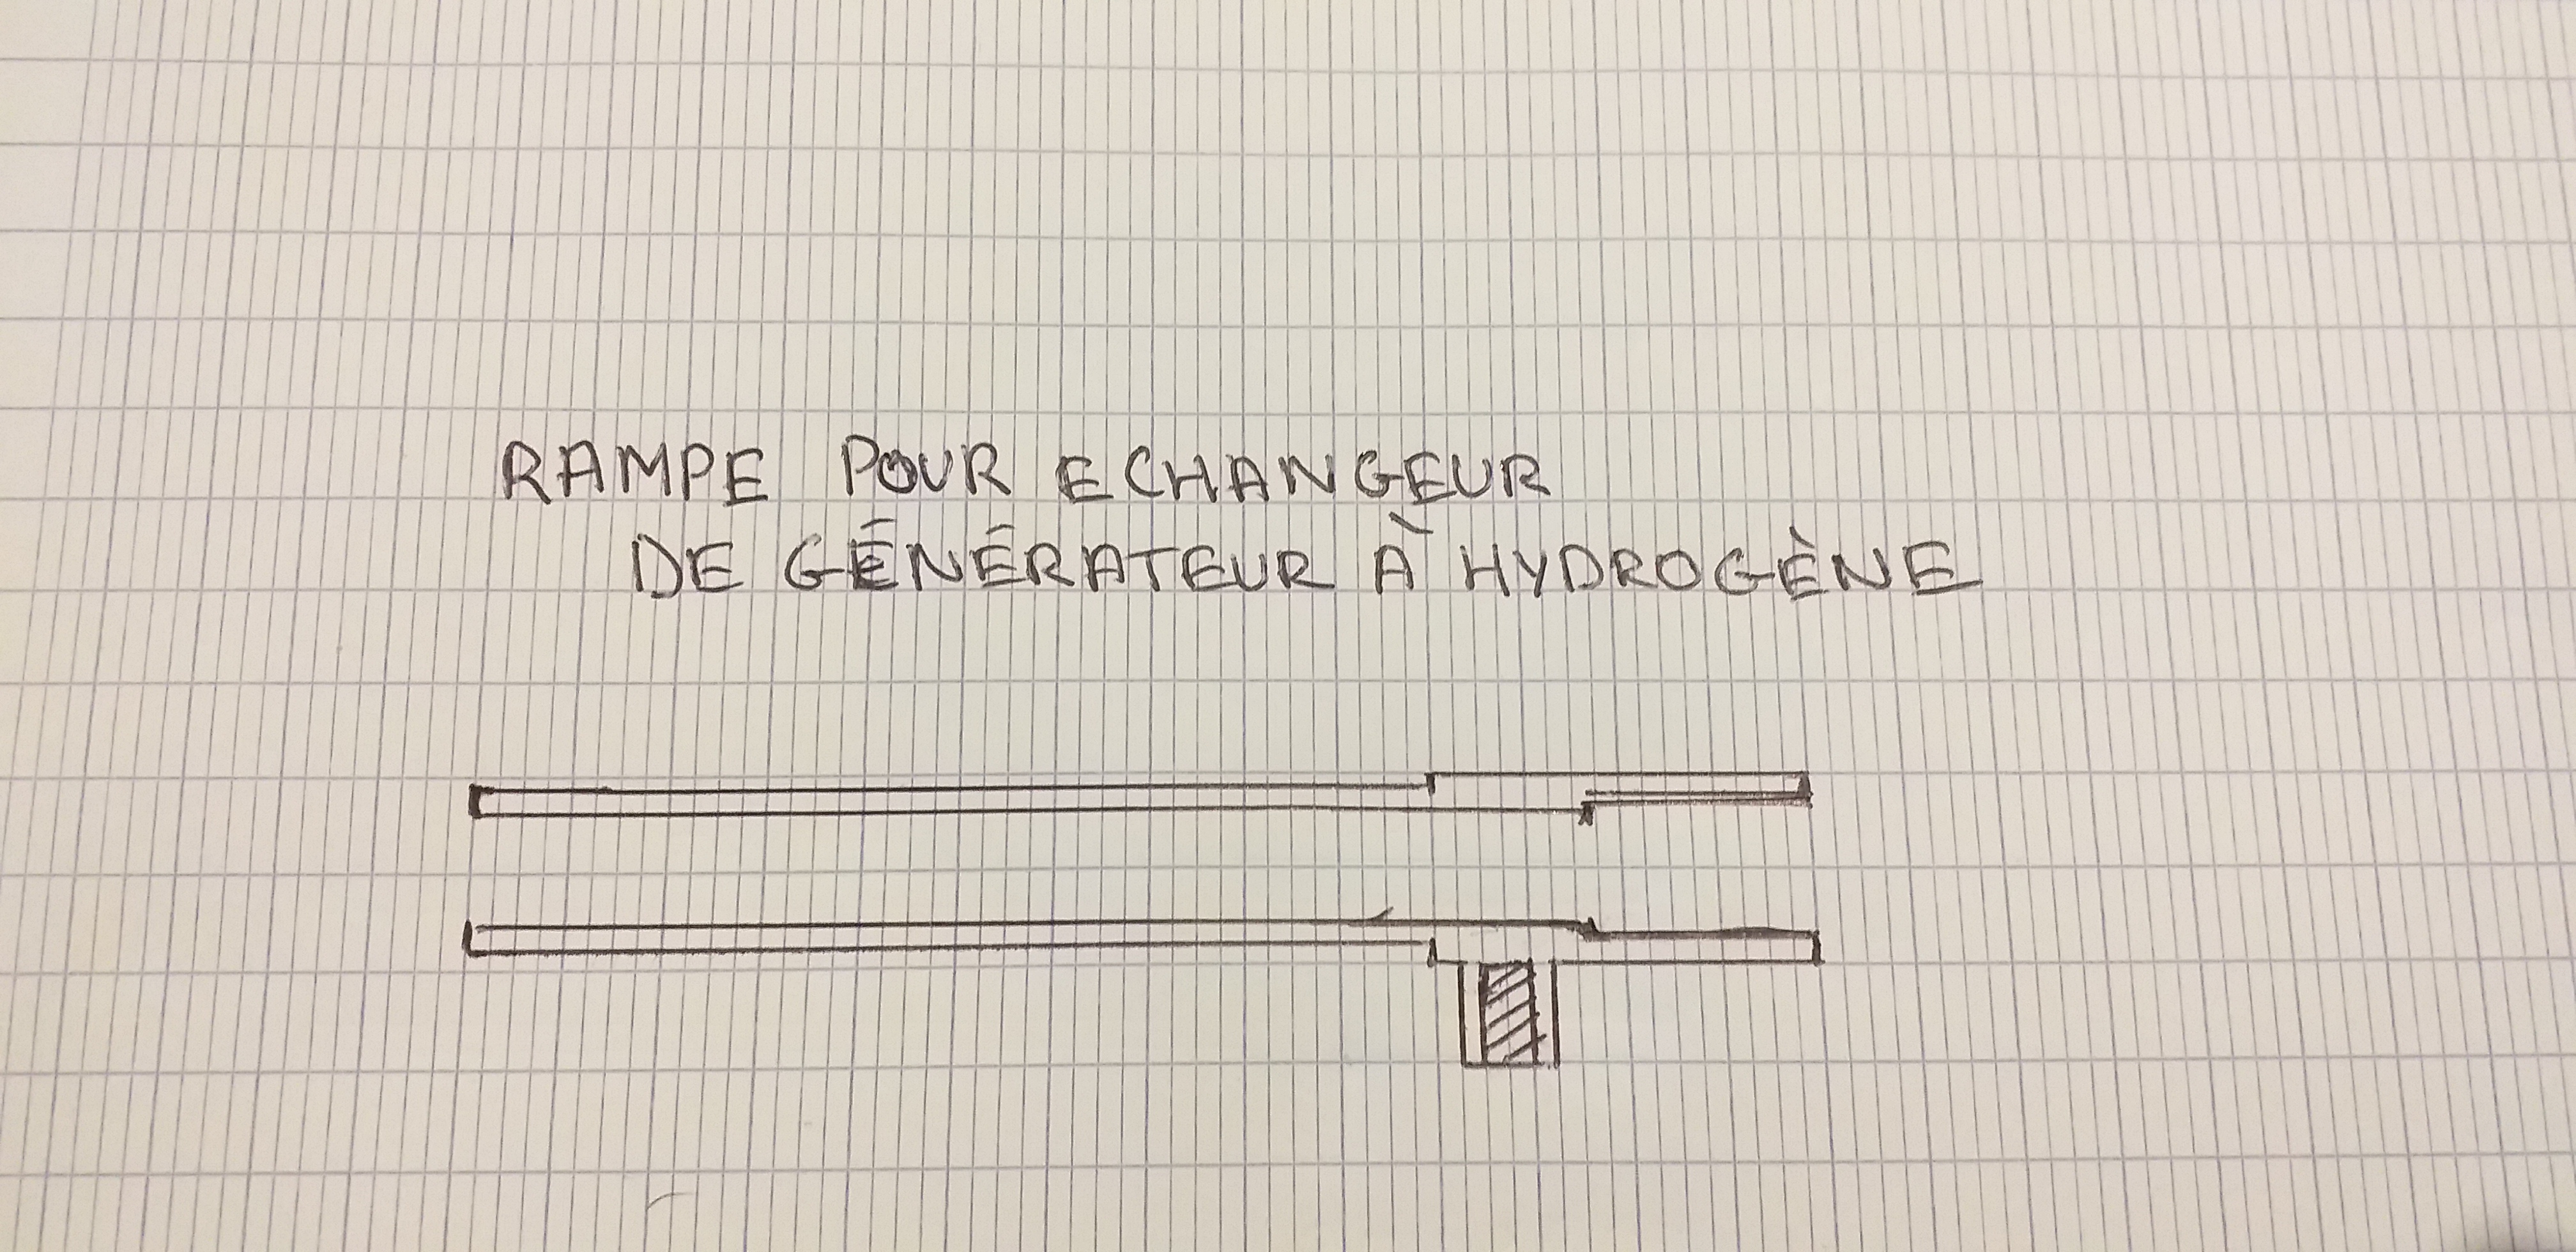 RAMPE POUR ECHANGEUR
DE GÉNÉRATEUR À HYDROGÈNE